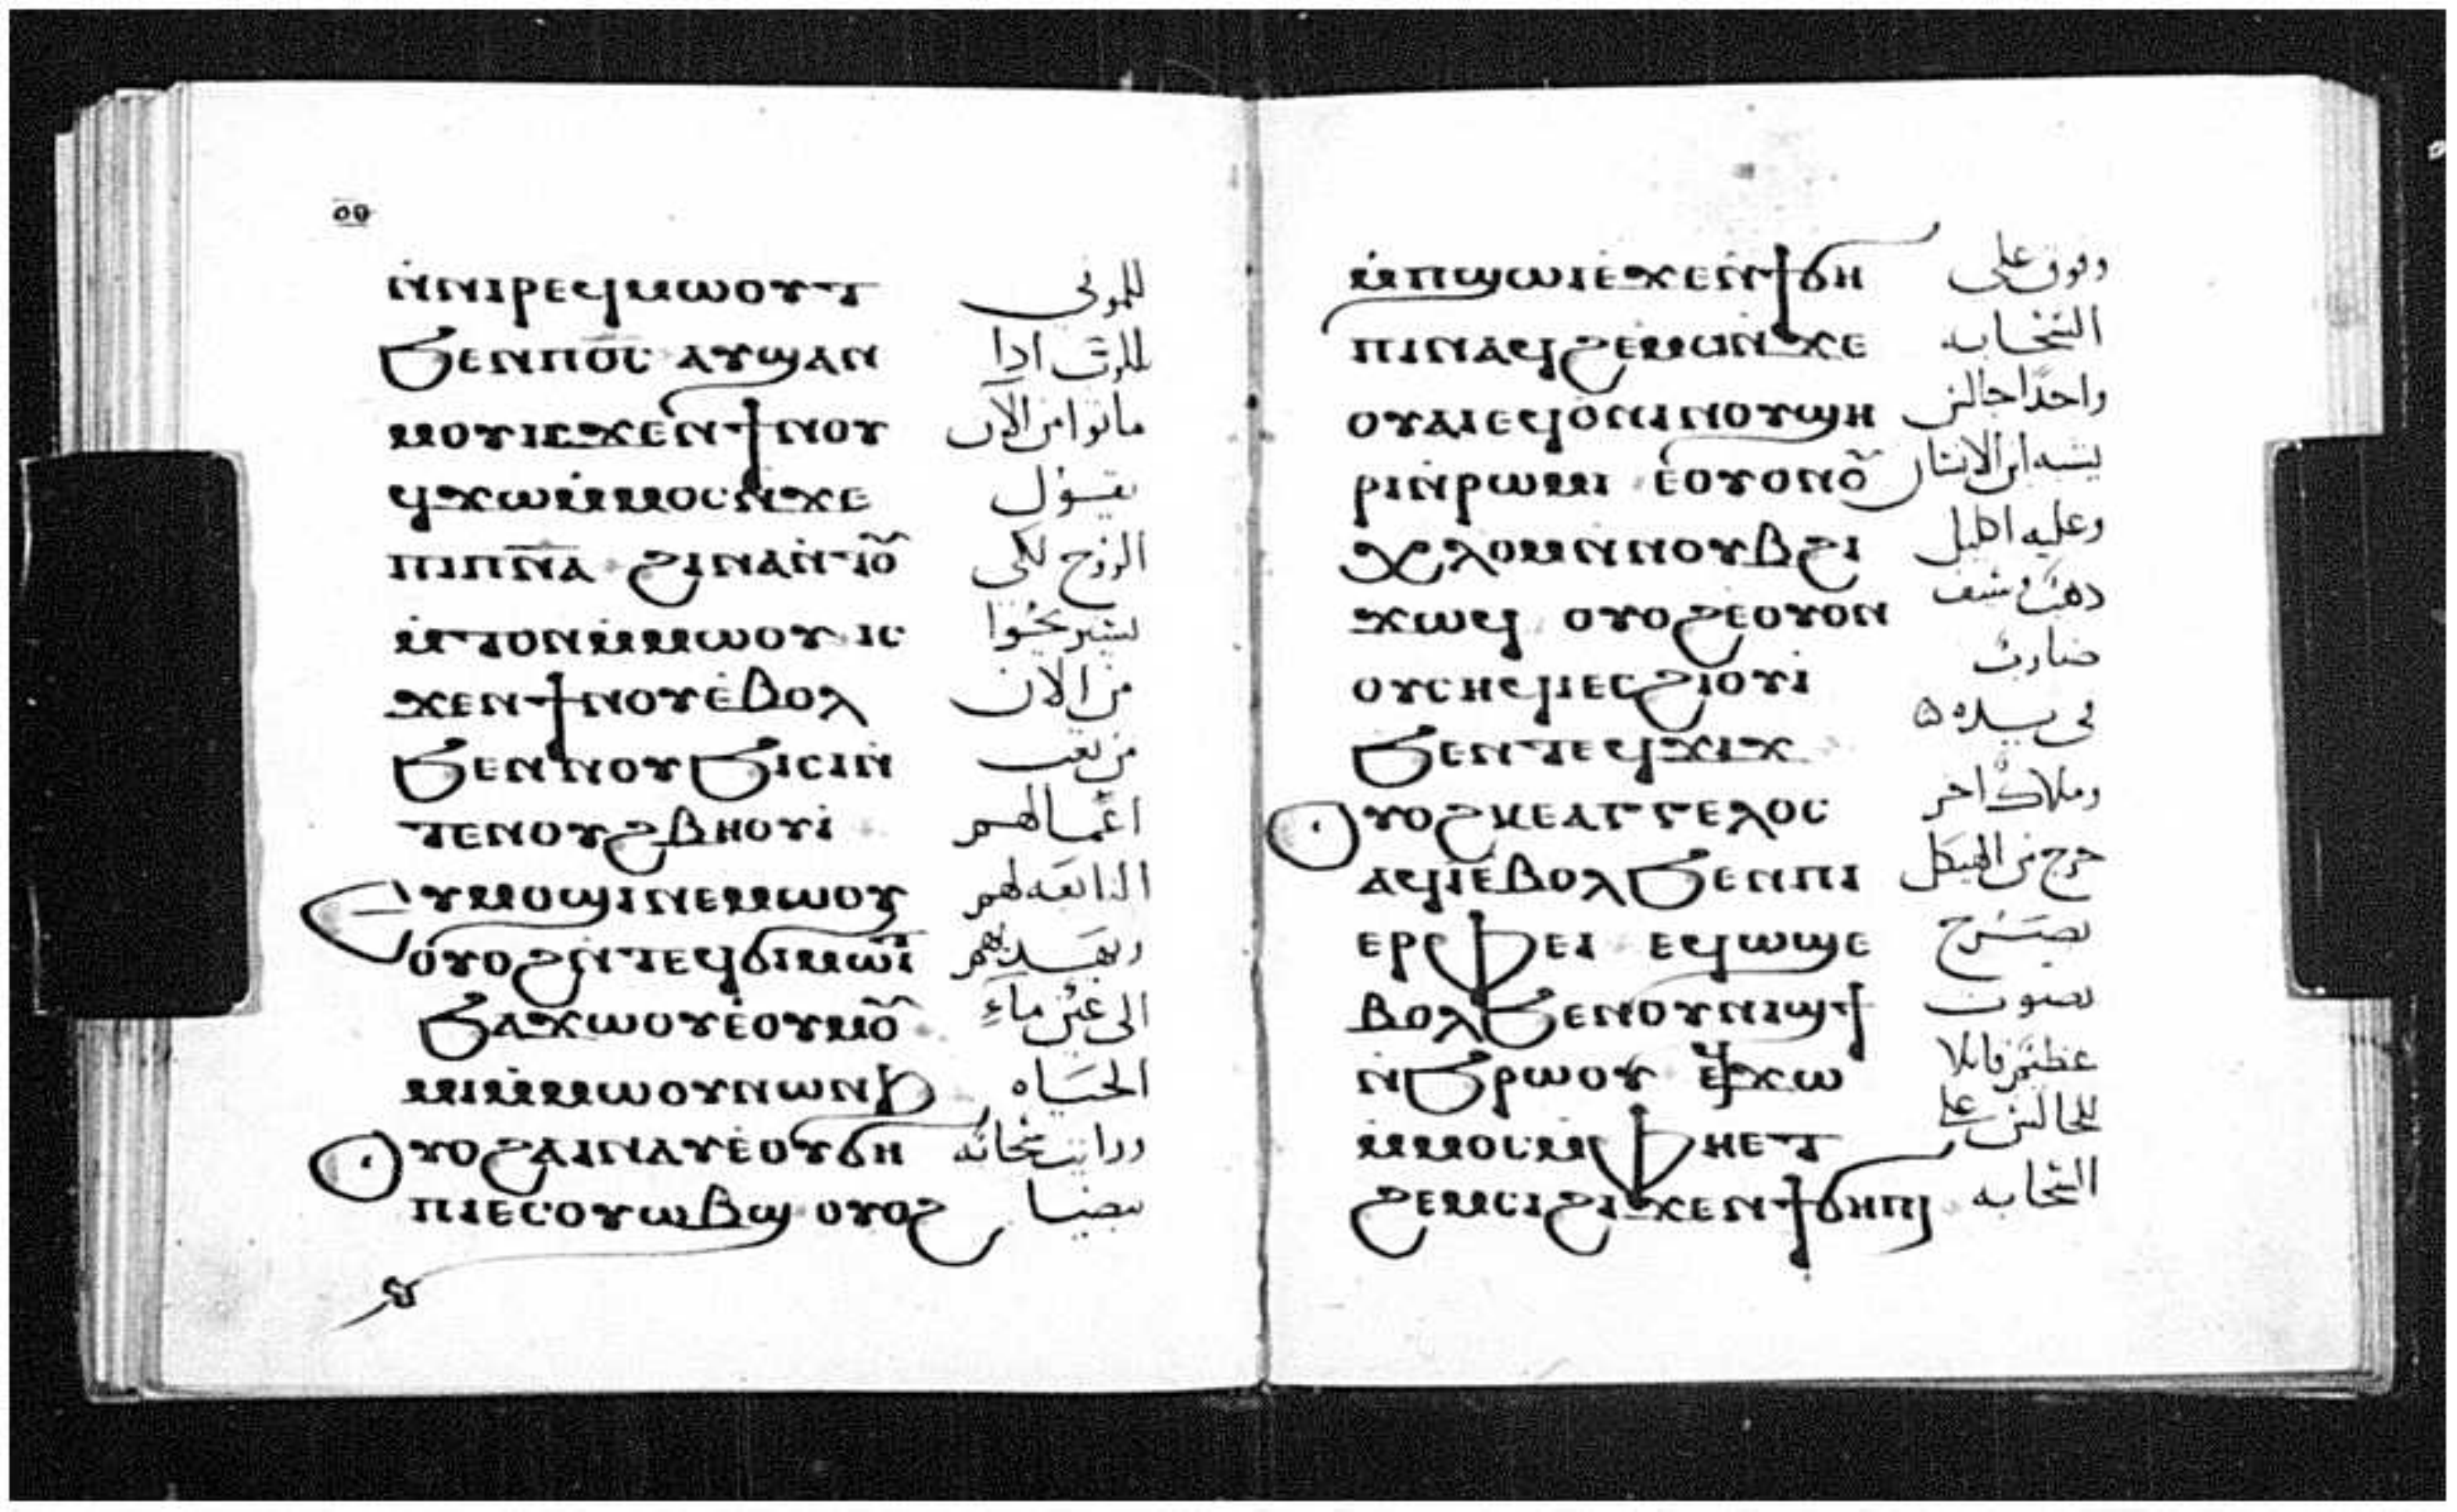 ⲛ̇ⲛⲓⲣⲉϥⲙⲱⲟⲩⲧ للموتى
ϧⲉⲛⲡⲟ̅ⲥ̅ ⲁⲩϣⲁⲛ للرب اذا
ⲙⲟⲩⲓⲥϫⲉⲛϯⲛⲟⲩ ماتوا من الآن
ϥϫⲱⲙ̇ⲙⲟⲥⲛ̇ϫⲉ يقول
ⲡⲓⲡⲛ̅ⲁ ϩⲓⲛⲁⲛ̇ⲧⲟⲩ الروح لكى
ⲙ̇ⲧⲟⲛⲙ̇ⲙⲱⲟⲩ ⲓⲥ يستريحوا
ϫⲉⲛϯⲛⲟⲩⲉ̇ⲃⲟⲗ من الان
ϧⲉⲛⲛⲟⲩϧⲓⲥⲓⲛ̇ من تعب
ⲧⲉⲛⲟⲩϩⲃⲏⲟⲩⲓ̇ اعمالهم
ⲉⲩⲙⲟϣⲓⲛⲉⲙⲱⲟⲩ التابعه لهم
ⲟⲩⲟϩⲛ̇ⲧⲉϥϭⲓⲙⲱⲓⲧ ويهديهم
ϧⲁϫⲱⲟⲩⲉ̇ⲟⲩⲙⲟⲩ الى عين ماء
ⲙⲓⲙ̇ⲙⲱⲟⲩⲛⲱⲛϧ الحياه
ⲟⲩⲟϩⲁⲓⲛⲁⲩⲉ̇ⲟⲩϭⲏ ورايت سحابه
ⲡⲓⲉⲥⲟⲩⲱⲃϣ ⲟⲩⲟϩ بيضا
ⲙ̇ⲡϣⲱⲓⲉ̇ϫⲉⲛϯϭⲏ وفوق على
ⲡⲓⲛⲁϥϩⲉⲙⲥⲓⲛ̇ϫⲉ السحابه
ⲟⲩⲁⲓⲉϥⲟⲛⲓⲛⲟⲩϣⲏ واحدًا جالس
ⲣⲓⲛ̇ⲣⲱⲙⲓ ⲉ̇ⲟⲩⲟⲛⲟⲩ يشبه ابن الانسان
ⲭⲗⲟⲙⲛ̇ⲛⲟⲩⲃϩⲓ وعليه اكليل
ϫⲱϥ ⲟⲩⲟϩⲉ̇ⲟⲩⲟⲛ ذهب وسيف
ⲟⲩⲥⲏϥⲓⲉⲥϩⲓⲟⲩⲓ̇ ضارب
ϧⲉⲛⲧⲉϥϫⲓϫ فى يده
ⲟⲩⲟϩⲕⲉⲁⲅⲅⲉⲗⲟⲥ وملاك اخر
ⲁϥⲓ̇ⲉ̇ⲃⲟⲗϧⲉⲛⲡⲓ خرج من الهيكل
ⲉⲣⲫⲉⲓ ⲉϥⲱϣⲉ يصرخ
ⲃⲟⲗϧⲉⲛⲟⲩⲛⲓϣϯ بصوت
ⲛ̇ϧⲣⲱⲟⲩ ⲉϥϫⲱ عظيم قايلا
ⲙ̇ⲙⲟⲥⲙ̇ⲫⲏⲉⲧ للجالس على
ϩⲉⲙⲥⲓϩⲓϫⲉⲛϯϭⲏⲡⲓ السحابه